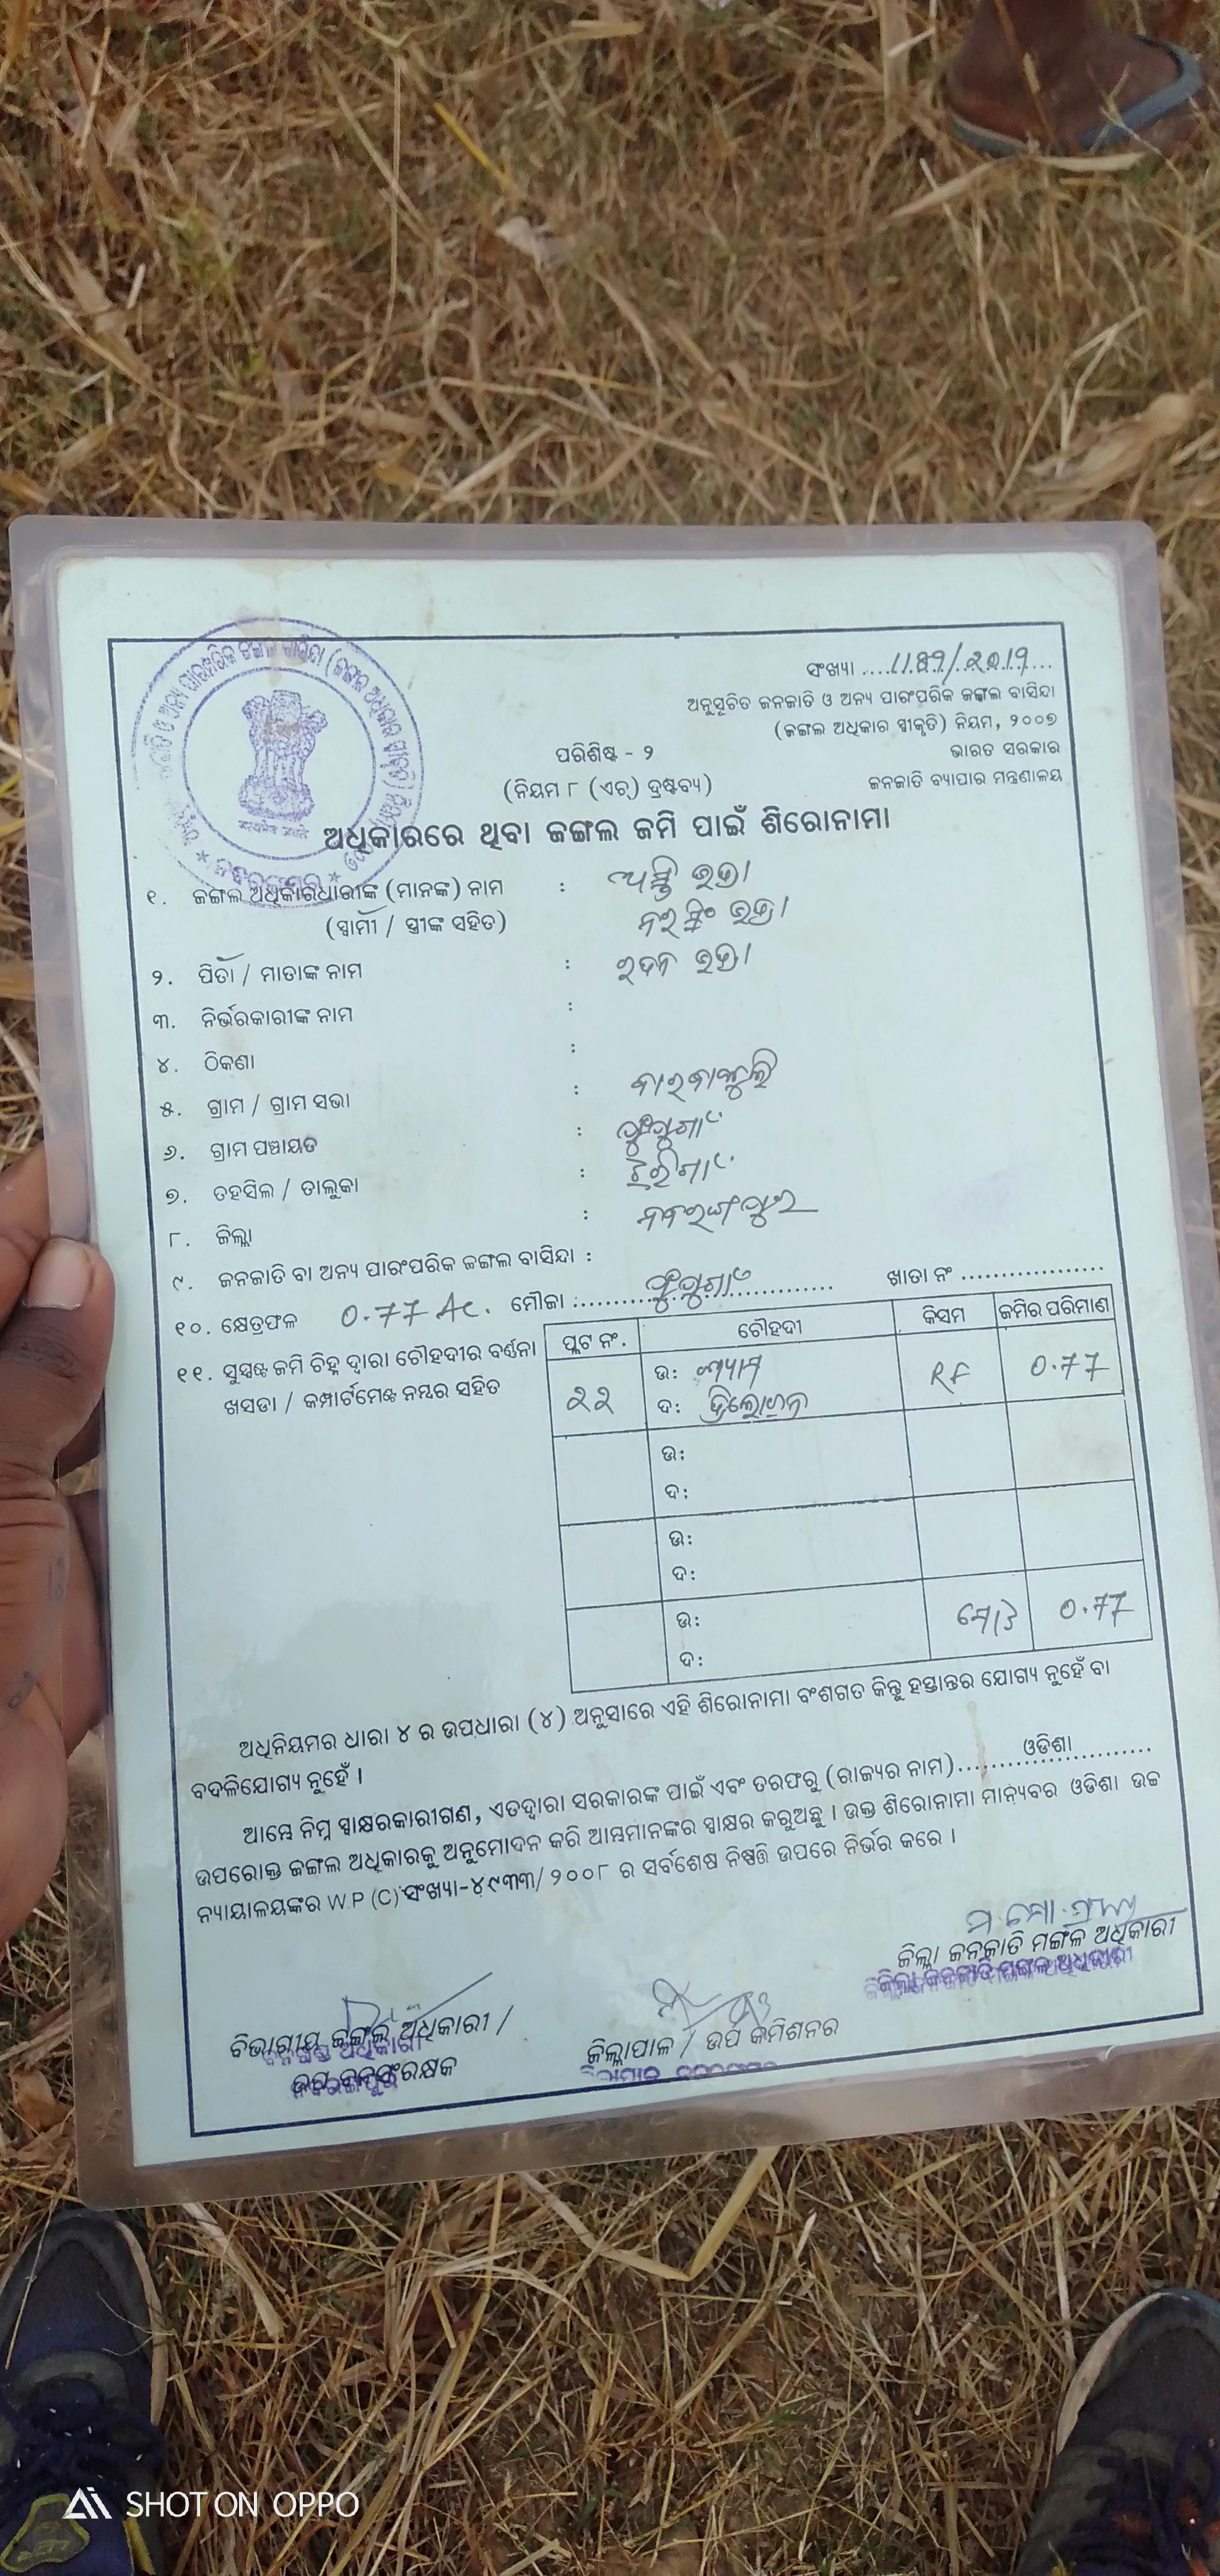 ସଂଖ୍ୟା ....1189/2019....
ଅନୁସୂଚିତ ଜନଜାତି ଓ ଅନ୍ୟ ପାରଂପରିକ ଜଙ୍ଗଲ ବାସିନ୍ଦା
(ଜଙ୍ଗଲ ଅଧିକାର ସ୍ୱୀକୃତି) ନିୟମ, ୨୦୦୭
ଭାରତ ସରକାର
ଜନଜାତି ବ୍ୟାପାର ମନ୍ତ୍ରଣାଳୟ
ପରିଶିଷ୍ଟ - ୨
(ନିୟମ ୮ (ଏଚ୍) ଦ୍ରଷ୍ଟବ୍ୟ)
ଅଧିକାରରେ ଥିବା ଜଙ୍ଗଲ ଜମି ପାଇଁ ଶିରୋନାମା
୧. ଜଙ୍ଗଲ ଅଧିକାରଧାରୀଙ୍କ (ମାନଙ୍କ) ନାମ :
(ସ୍ୱାମୀ / ସ୍ତ୍ରୀଙ୍କ ସହିତ)
୨. ପିତା / ମାତାଙ୍କ ନାମ :
୩. ନିର୍ଭରକାରୀଙ୍କ ନାମ :
୪. ଠିକଣା :
୫. ଗ୍ରାମ / ଗ୍ରାମ ସଭା :
୬. ଗ୍ରାମ ପଞ୍ଚାୟତ :
୭. ତହସିଲ / ତାଲୁକା : ଝରିଗାଁ
୮. ଜିଲ୍ଲା : ନବରଙ୍ଗପୁର
୯. ଜନଜାତି ବା ଅନ୍ୟ ପାରଂପରିକ ଜଙ୍ଗଲ ବାସିନ୍ଦା :
୧୦. କ୍ଷେତ୍ରଫଳ 0.77 Ac. ମୌଜା : ଖାତା ନଂ ..................
୧୧. ସୁସ୍ପଷ୍ଟ ଜମି ଚିହ୍ନ ଦ୍ୱାରା ଚୌହଦୀର ବର୍ଣ୍ଣନା
ଖସଡା / କମ୍ପାର୍ଟମେଣ୍ଟ ନମ୍ବର ସହିତ
ପ୍ଲଟ ନଂ. ଚୌହଦୀ କିସମ ଜମିର ପରିମାଣ
୨୨ ଉ: ଶ୍ୟାମ RF 0.77
ଦ: ତ୍ରିଲୋଚନ
ଉ:
ଦ:
ଉ:
ଦ:
ଉ: ମୋଟ 0.77
ଦ:
ଅଧିନିୟମର ଧାରା ୪ ର ଉପଧାରା (୪) ଅନୁସାରେ ଏହି ଶିରୋନାମା ବଂଶଗତ କିନ୍ତୁ ହସ୍ତାନ୍ତର ଯୋଗ୍ୟ ନୁହେଁ ବା
ବଦଳିଯୋଗ୍ୟ ନୁହେଁ ।
ଆମ୍ଭେ ନିମ୍ନ ସ୍ୱାକ୍ଷରକାରୀଗଣ, ଏତଦ୍ୱାରା ସରକାରଙ୍କ ପାଇଁ ଏବଂ ତରଫରୁ (ରାଜ୍ୟର ନାମ) ......ଓଡିଶା......
ଉପରୋକ୍ତ ଜଙ୍ଗଲ ଅଧିକାରକୁ ଅନୁମୋଦନ କରି ଆମ୍ଭମାନଙ୍କର ସ୍ୱାକ୍ଷର କରୁଅଛୁ । ଉକ୍ତ ଶିରୋନାମା ମାନ୍ୟବର ଓଡିଶା ଉଚ୍ଚ
ନ୍ୟାୟାଳୟଙ୍କର W P (C) ସଂଖ୍ୟା-୪୯୩୩/୨୦୦୮ ର ସର୍ବଶେଷ ନିଷ୍ପତ୍ତି ଉପରେ ନିର୍ଭର କରେ ।
ଜିଲ୍ଲା ଜନଜାତି ମଙ୍ଗଳ ଅଧିକାରୀ
ଜିଲ୍ଲା ଜନଜାତି ମଙ୍ଗଳ ଅଧିକାରୀ
ବିଭାଗୀୟ ଜଙ୍ଗଲ ଅଧିକାରୀ /
ଉପ ବନସଂରକ୍ଷକ
ଜିଲ୍ଲାପାଳ / ଉପ କମିଶନର
SHOT ON OPPO